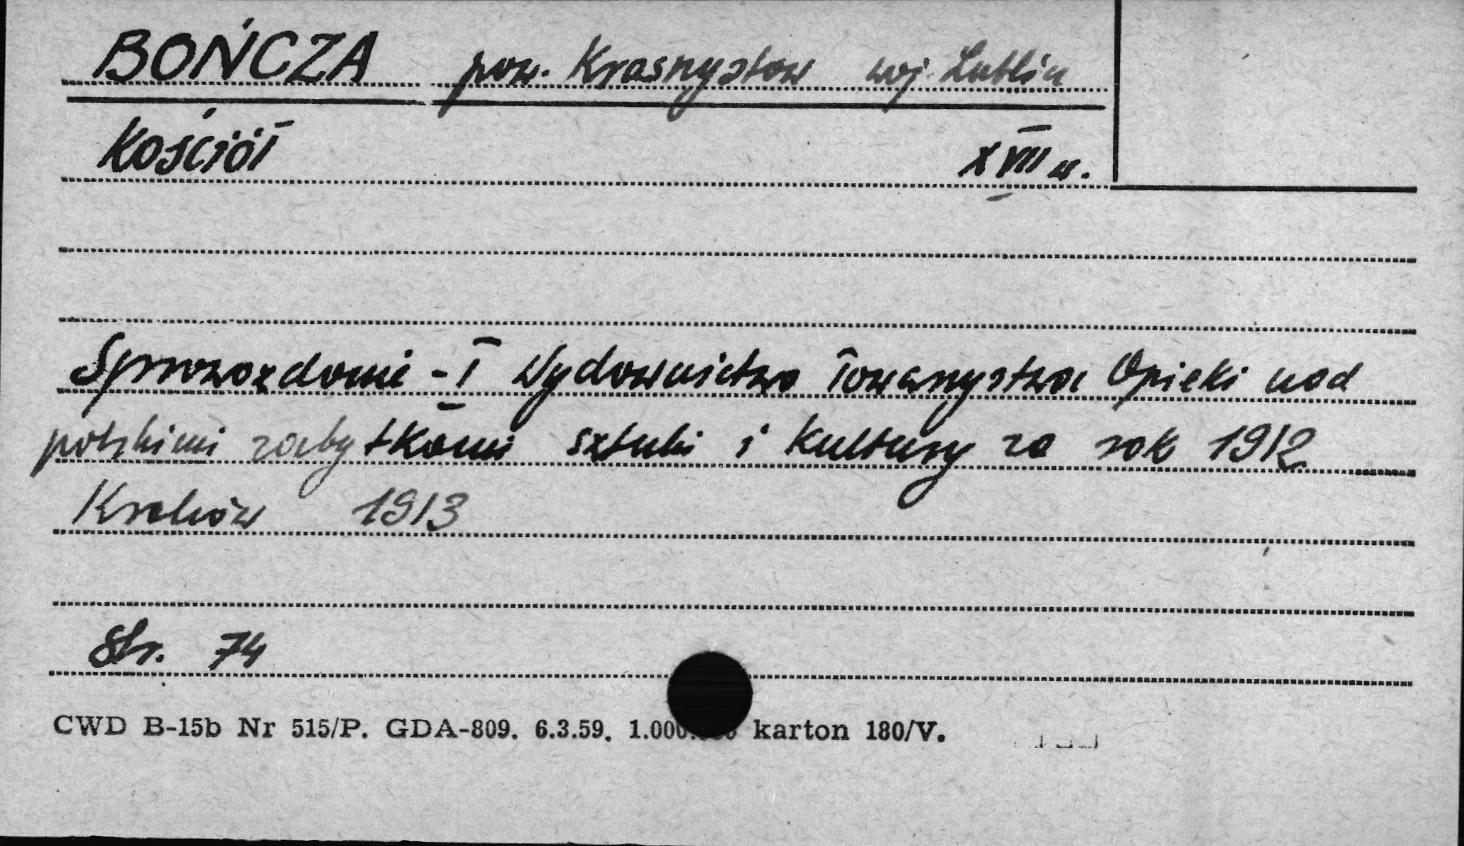 BOŃCZA pow. Krasnystaw woj. Lublin
Kościół XVII w.
Sprawozdanie - I Wydawnictwo Towarzystwa Opieki nad
polskimi zabytkami sztuki i kultury za rok 1912
Kraków 1913
Str. 74
CWD B-15b Nr 515/P. GDA-809. 6.3.59. 1.000.000 karton 180/V.